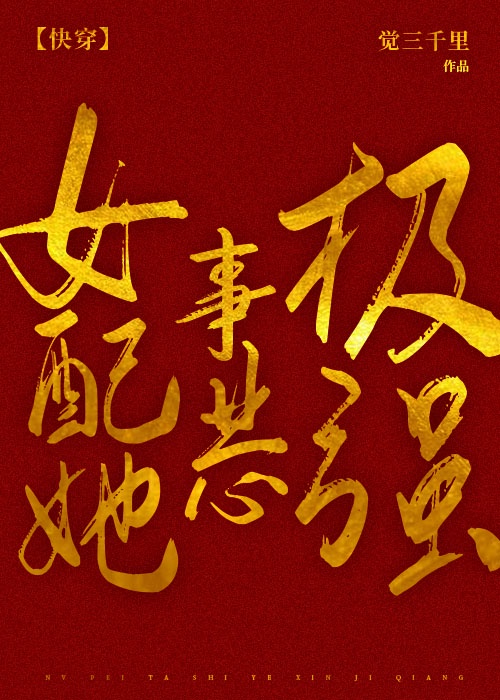 【快穿】
觉三千里
作品
女配她
事业心
极强
NV PEI TA SHI YE XIN JI QIANG